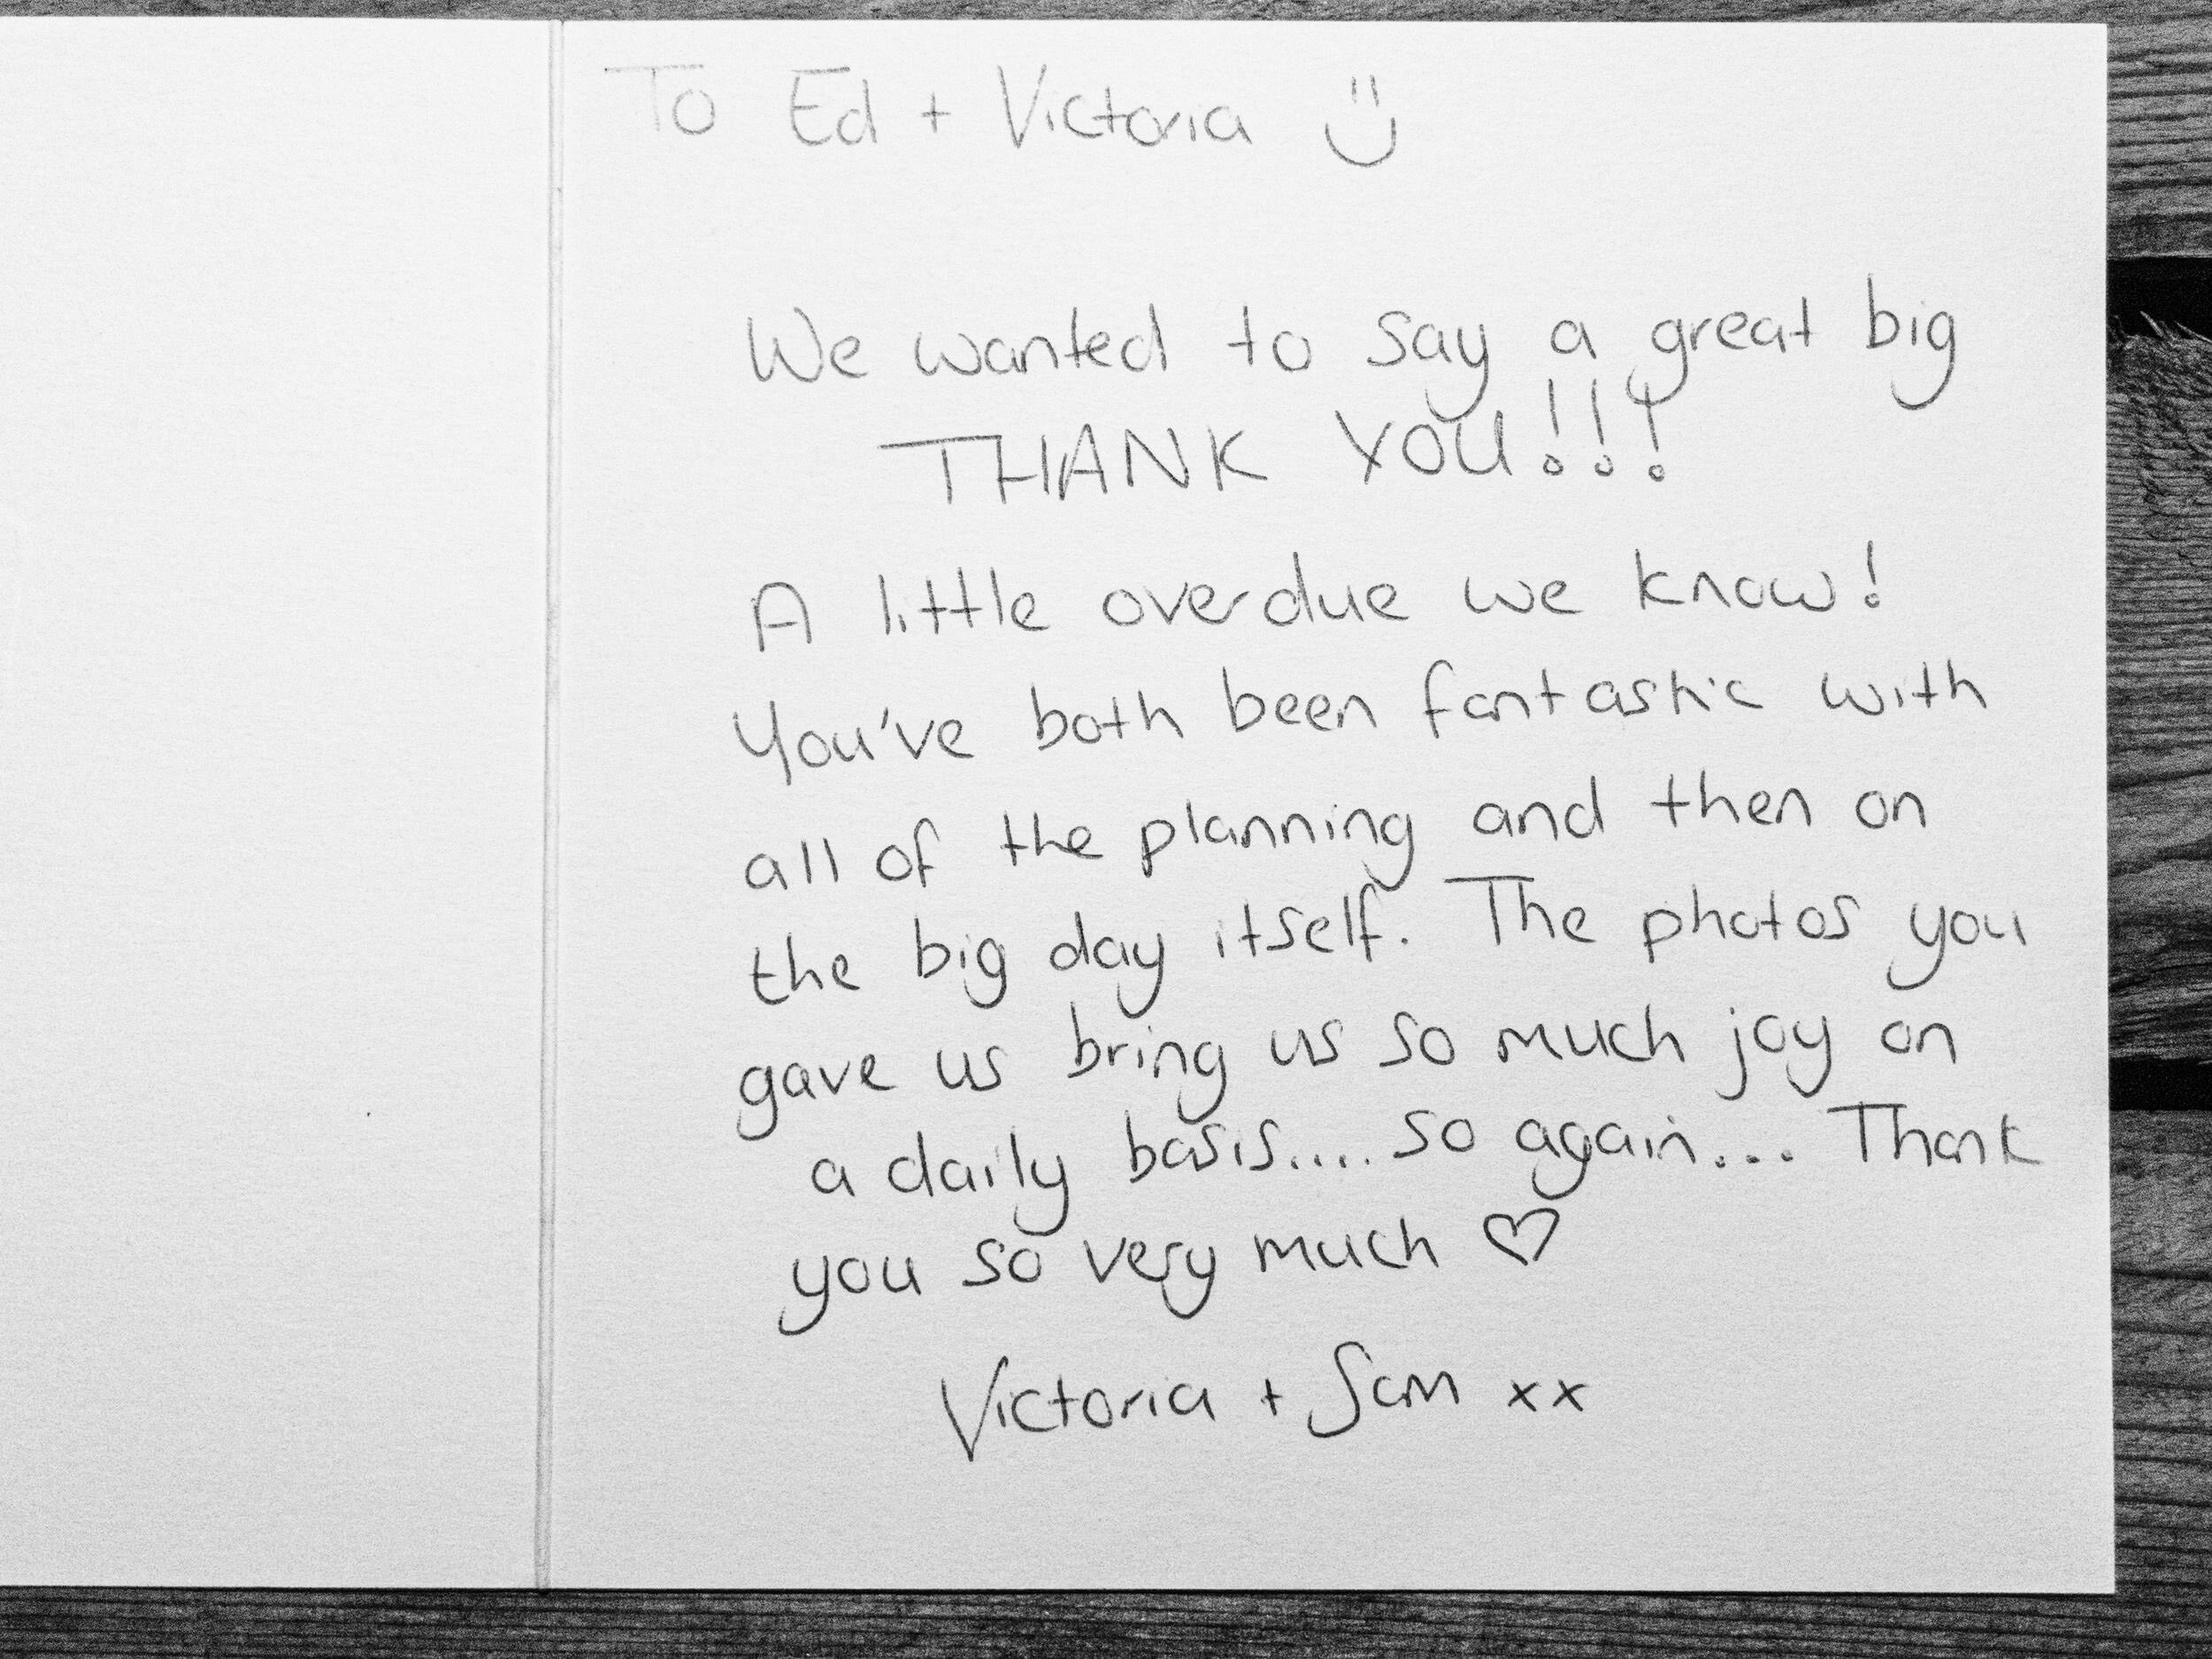 To Ed + Victoria ü
We wanted to say a great big
THANK YOU!!!
A little overdue we know!
You've both been fantastic with
all of the planning and then on
the big day itself. The photos you
gave us bring us so much joy on
a daily basis.... so again... Thank
you so very much ♡
Victoria + Sam xx